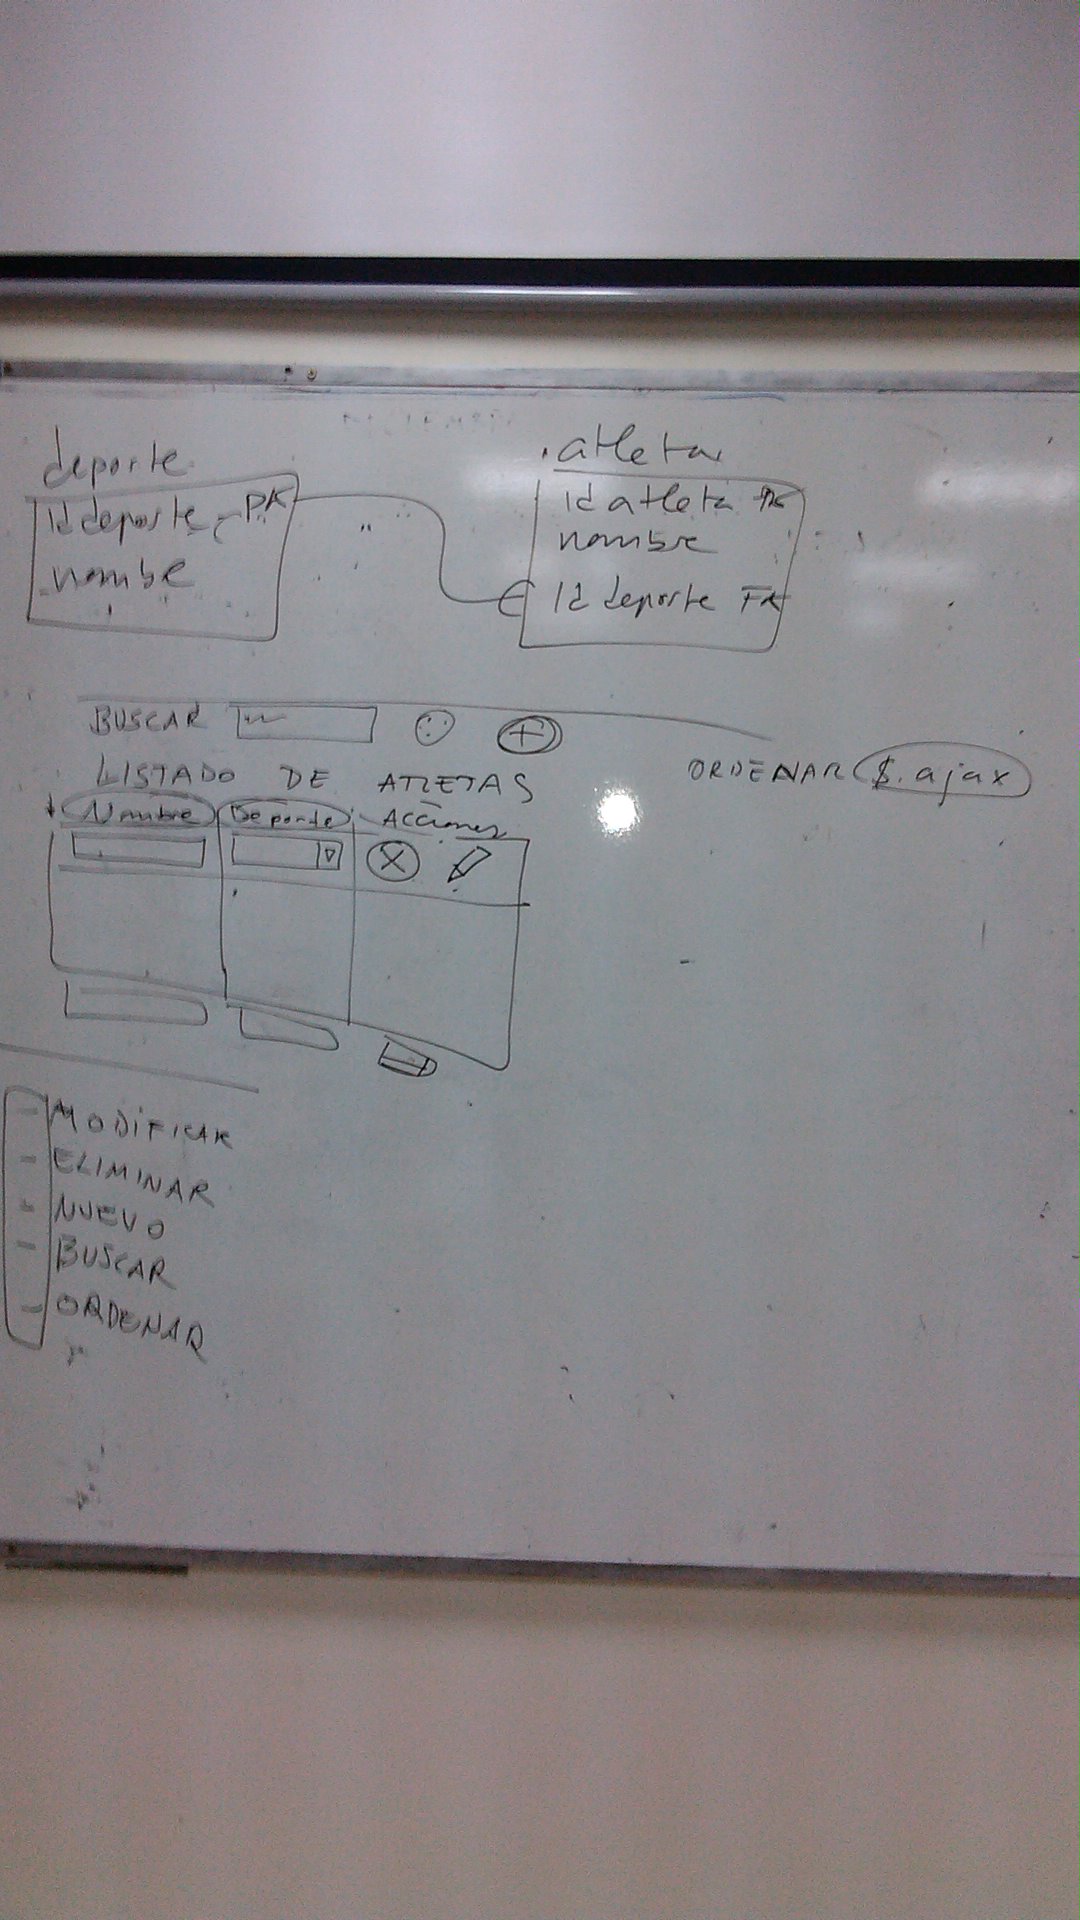 deporte
Id deporte - PK
nombe
atletas
id atleta PK
nombre
Id deporte FK
BUSCAR
LISTADO DE ATLETAS
Nombre Deporte Acciones
ORDENAR $.ajax
- MODIFICAR
- ELIMINAR
- NUEVO
- BUSCAR
- ORDENAR